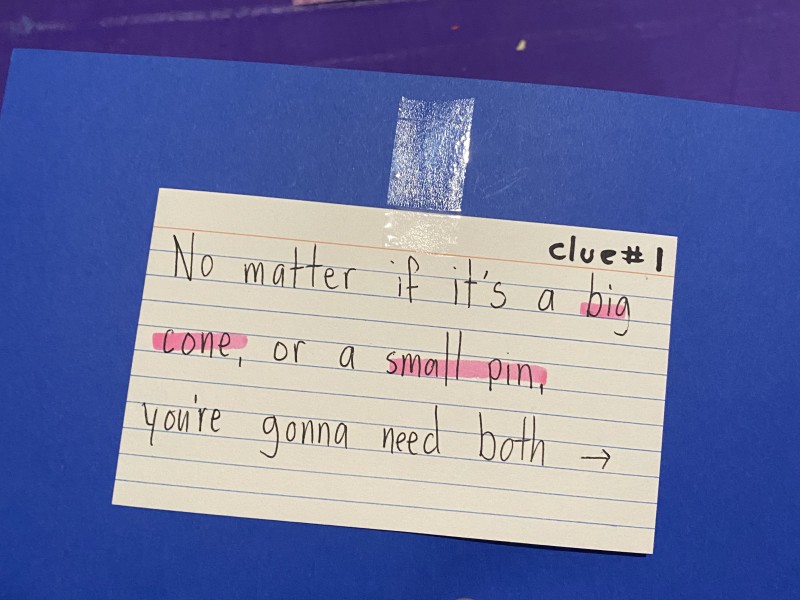 clue# 1
No matter if it's a big
cone, or a small pin,
you're gonna need both →